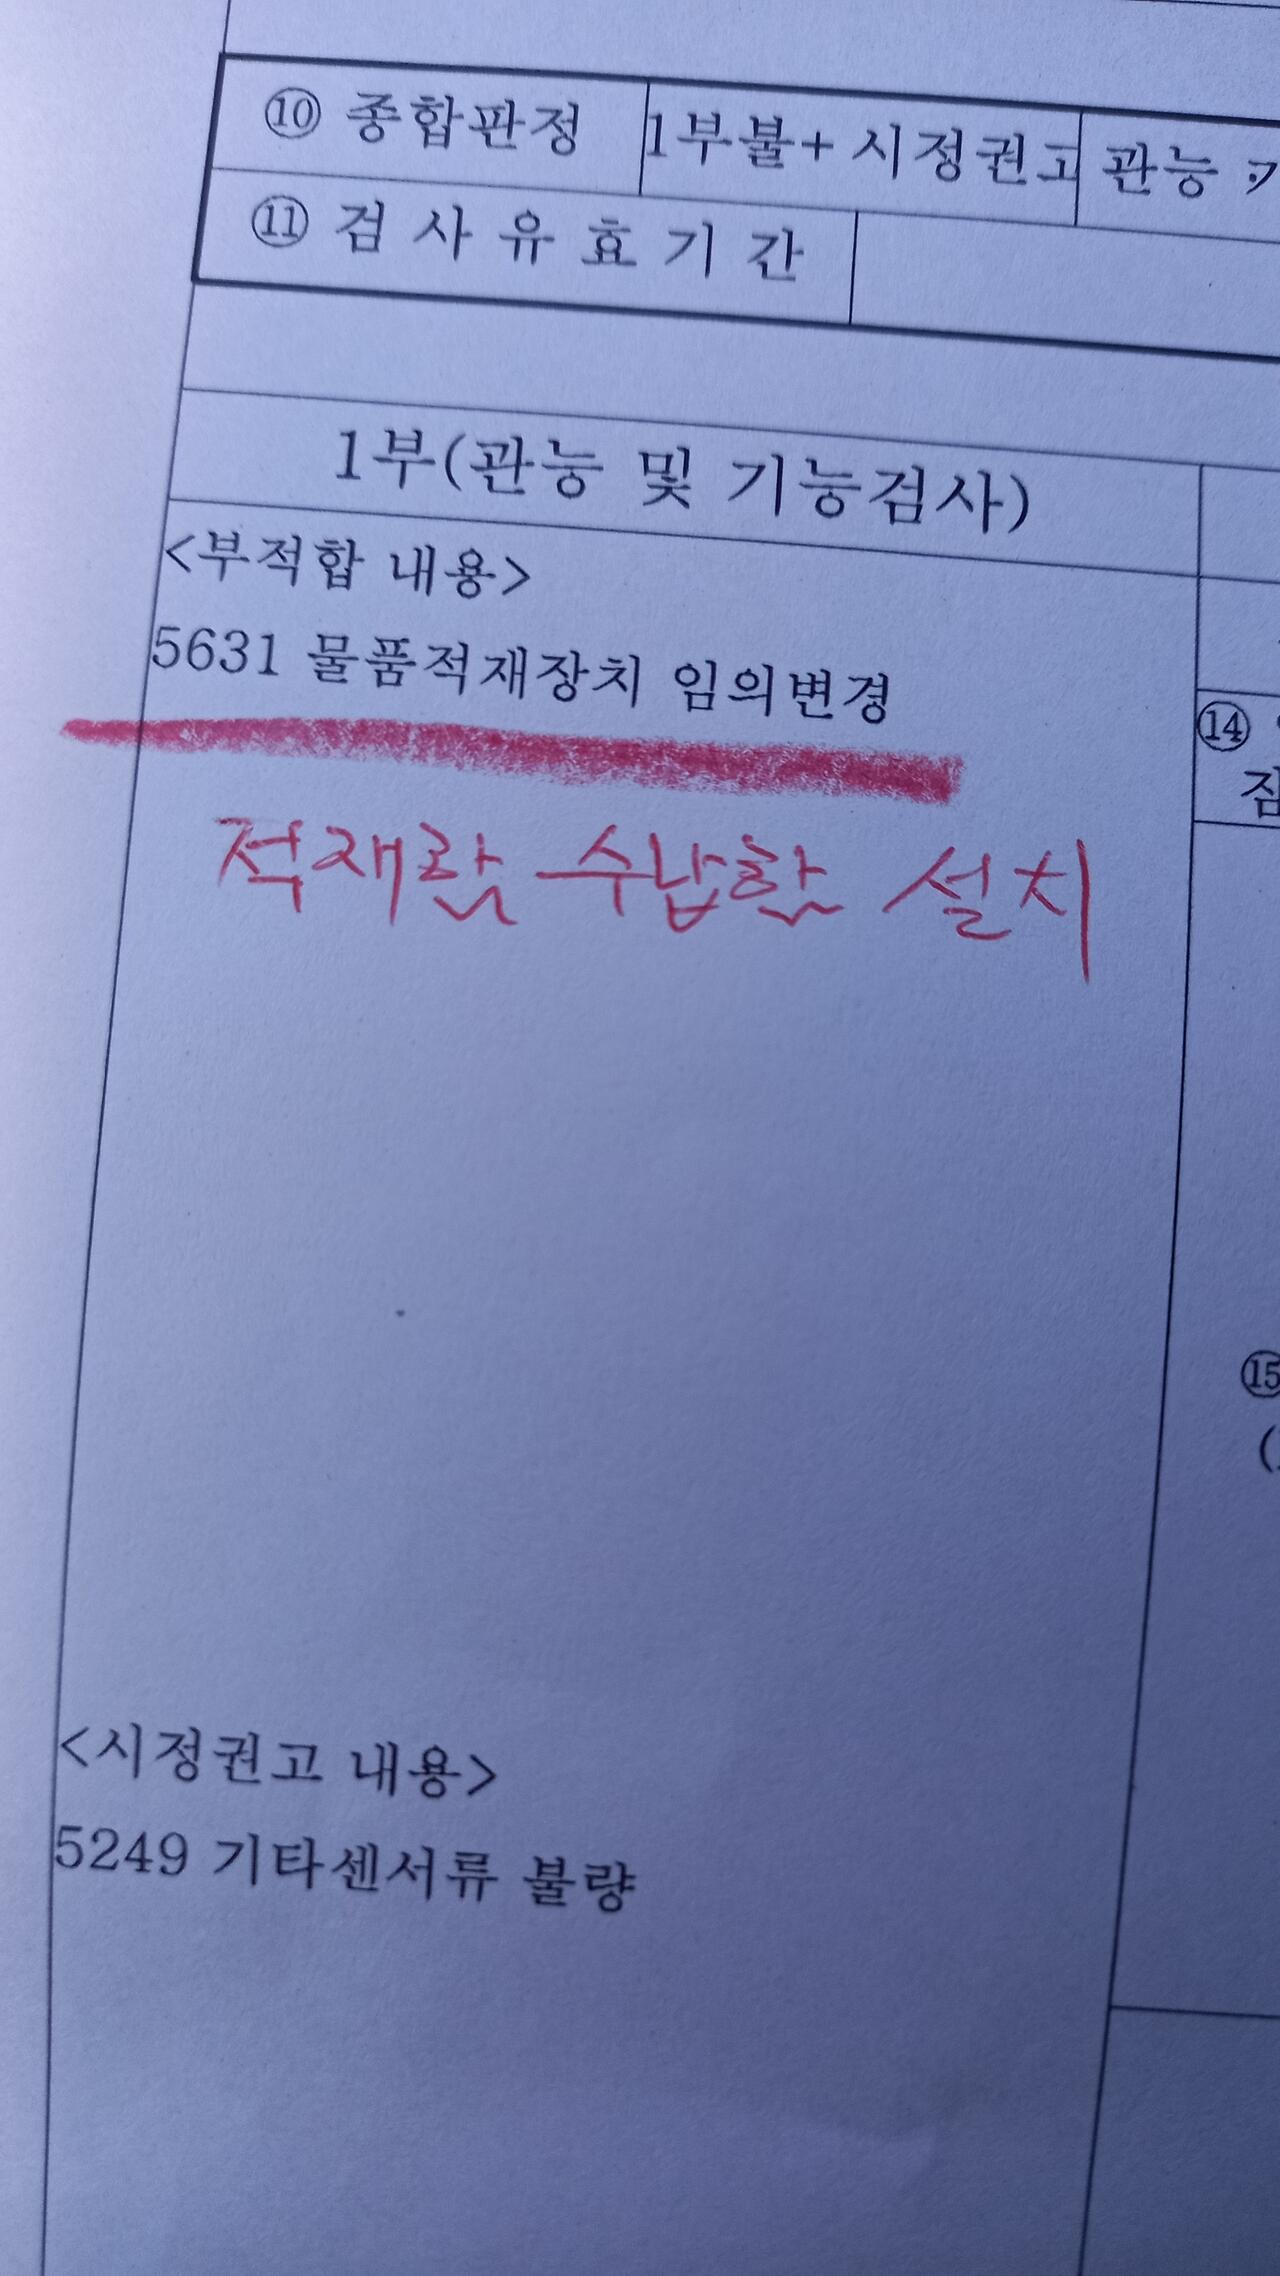 ⑩ 종합판정 1부불+ 시정권고 관능
⑪ 검사유효기간
1부(관능 및 기능검사)
<부적합 내용>
5631 물품적재장치 임의변경
⑭
적재함 수납함 설치
⑮
(
<시정권고 내용>
5249 기타센서류 불량